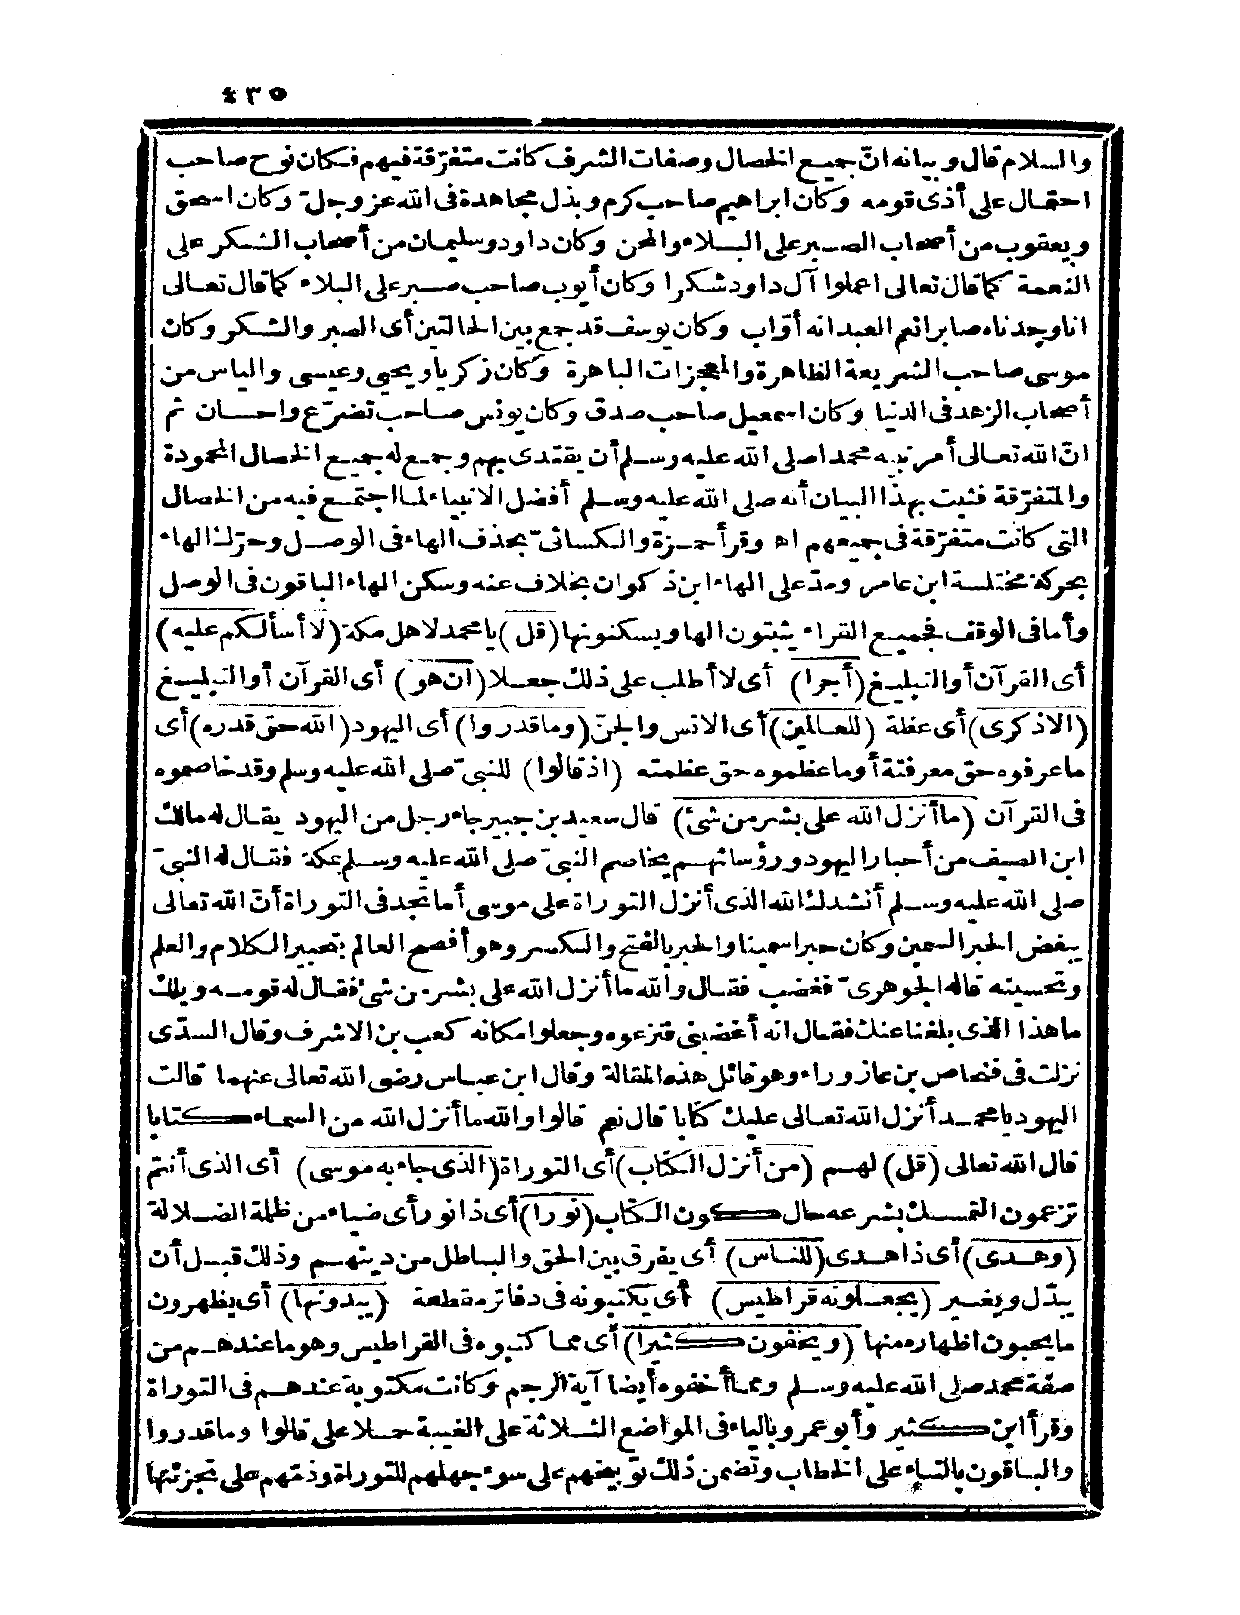 ٤٣٥
والسلام قال وبيانه انّ جميع الخصال وصفات الشرف كانت متفرّقة فيهم فكان نوح صاحب
احتمال على أذى قومه وكان ابراهيم صاحب كرم وبذل مجاهدة فى الله عز وجل وكان اسحق
ويعقوب من أصحاب الصبر على البلاء والمحن وكان داود وسليمان من أصحاب الشكر على
النعمة كما قال تعالى اعملوا آل داود شكرا وكان أيوب صاحب صبر على البلاء كما قال تعالى
انا وجدناه صابرا نعم العبد انه أوّاب وكان يوسف قد جمع بين الحالتين أى الصبر والشكر وكان
موسى صاحب الشريعة الظاهرة والمعجزات الباهرة وكان زكريا ويحيى وعيسى والياس من
أصحاب الزهد فى الدنيا وكان اسمعيل صاحب صدق وكان يونس صاحب تضرّع واحسان ثم
انّ الله تعالى أمر نبيه محمدا صلى الله عليه وسلم أن يقتدى بهم وجمع له جميع الخصال المحمودة
والمتفرّقة فثبت بهذا البيان أنه صلى الله عليه وسلم أفضل الانبياء لما اجتمع فيه من الخصال
التى كانت متفرّقة فى جميعهم اه وقرأ حمزة والكسائىّ بحذف الهاء فى الوصل وحرّك الهاء
بحركة مختلسة ابن عامر ومدّ على الهاء ابن ذكوان بخلاف عنه وسكن الهاء الباقون فى الوصل
وأما فى الوقف فجميع القراء يثبتون الها ويسكنونها (قل) يا محمد لاهل مكة (لا أسألكم عليه)
أى القرآن أو التبليغ (أجرا) أى لا أطلب على ذلك جعلا (ان هو) أى القرآن أو التبليغ
(الاذكرى) أى عظة (للعالمين) أى الانس والجنّ (وما قدروا) أى اليهود (الله حق قدره) أى
ما عرفوه حق معرفتة أو ما عظموه حق عظمته (اذ قالوا) للنبىّ صلى الله عليه وسلم وقد خاصموه
فى القرآن (ما أنزل الله على بشر من شئ) قال سعيد بن جبير جاء رجل من اليهود يقال له مالك
ابن الصيف من أحبار اليهود ورؤسائهم يخاصم النبىّ صلى الله عليه وسلم بمكة فقال له النبىّ
صلى الله عليه وسلم أنشدك الله الذى أنزل التوراة على موسى أما تجد فى التوراة أنّ الله تعالى
يبغض الحبر السمين وكان حبرا سمينا والحبر بالفتح والكسر وهو أفصح العالم بتحبير الكلام والعلم
وتحسينه قاله الجوهرىّ فغضب فقال والله ما أنزل الله على بشر من شئ فقال له قومه ويلك
ما هذا الذى بلغنا عنك فقال انه أغضبنى فنزعوه وجعلوا مكانه كعب بن الاشرف وقال السدّى
نزلت فى فنحاص بن عازوراء وهو قائل هذه المقالة وقال ابن عباس رضى الله تعالى عنهما قالت
اليهود يا محمد أنزل الله تعالى عليك كتابا قال نعم قالوا والله ما أنزل الله من السماء كتابا
قال الله تعالى (قل) لهم (من أنزل الكتاب) أى التوراة (الذى جاء به موسى) أى الذى أنتم
تزعمون التمسك بشرعه حال كون الكتاب (نورا) أى ذا نور أى ضياء من ظلمة الضلالة
(وهدى) أى ذا هدى (للناس) أى يفرق بين الحق والباطل من دينهم وذلك قبل أن
يبدّل ويغير (يجعلونه قراطيس) أى يكتبونه فى دفاتر مقطعة (يبدونها) أى يظهرون
ما يحبون اظهاره منها (ويخفون كثيرا) أى مما كتبوه فى القراطيس وهو ما عندهم من
صفة محمد صلى الله عليه وسلم ومما أخفوه أيضا آية الرجم وكانت مكتوبة عندهم فى التوراة
وقرأ ابن كثير وأبو عمرو بالياء فى المواضع الثلاثة على الغيبة حملا على قالوا وما قدروا
والباقون بالتاء على الخطاب وتضمن ذلك توبيخهم على سوء جهلهم للتوراة وذمّهم على تجزئتها